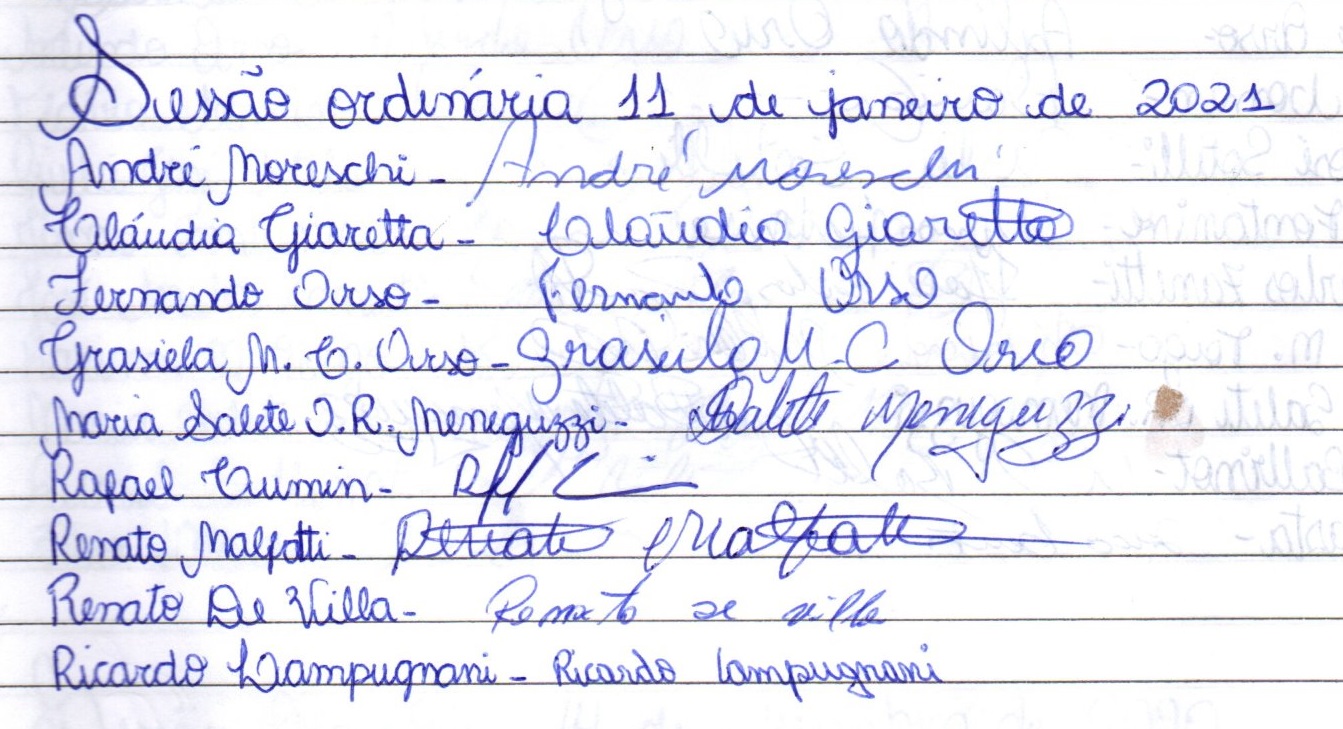 Sessão ordinária 11 de janeiro de 2021
André Moreschi - André Moreschi
Cláudia Giaretta - Claúdia Giaretta
Fernando Orso - Fernando Orso
Grasiela M. C. Orso - Grasiela M. C Orso
Maria Salete D. R. Meneguzzi - Salete Meneguzzi
Rafael Tumin -
Renato Malfatti - Renato Malfatti
Renato De Villa - Renato de villa
Ricardo Lampugnani - Ricardo Lampugnani